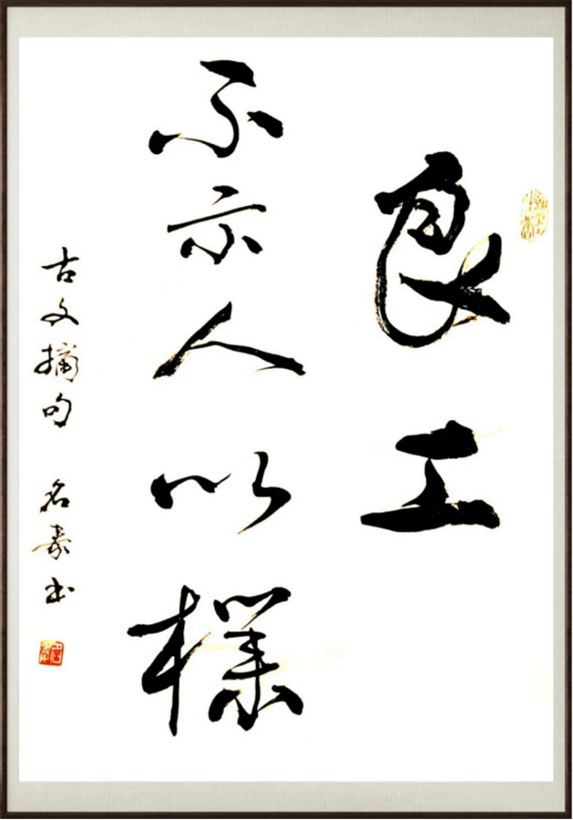 良工
不示人以樸
古文摘句 名书